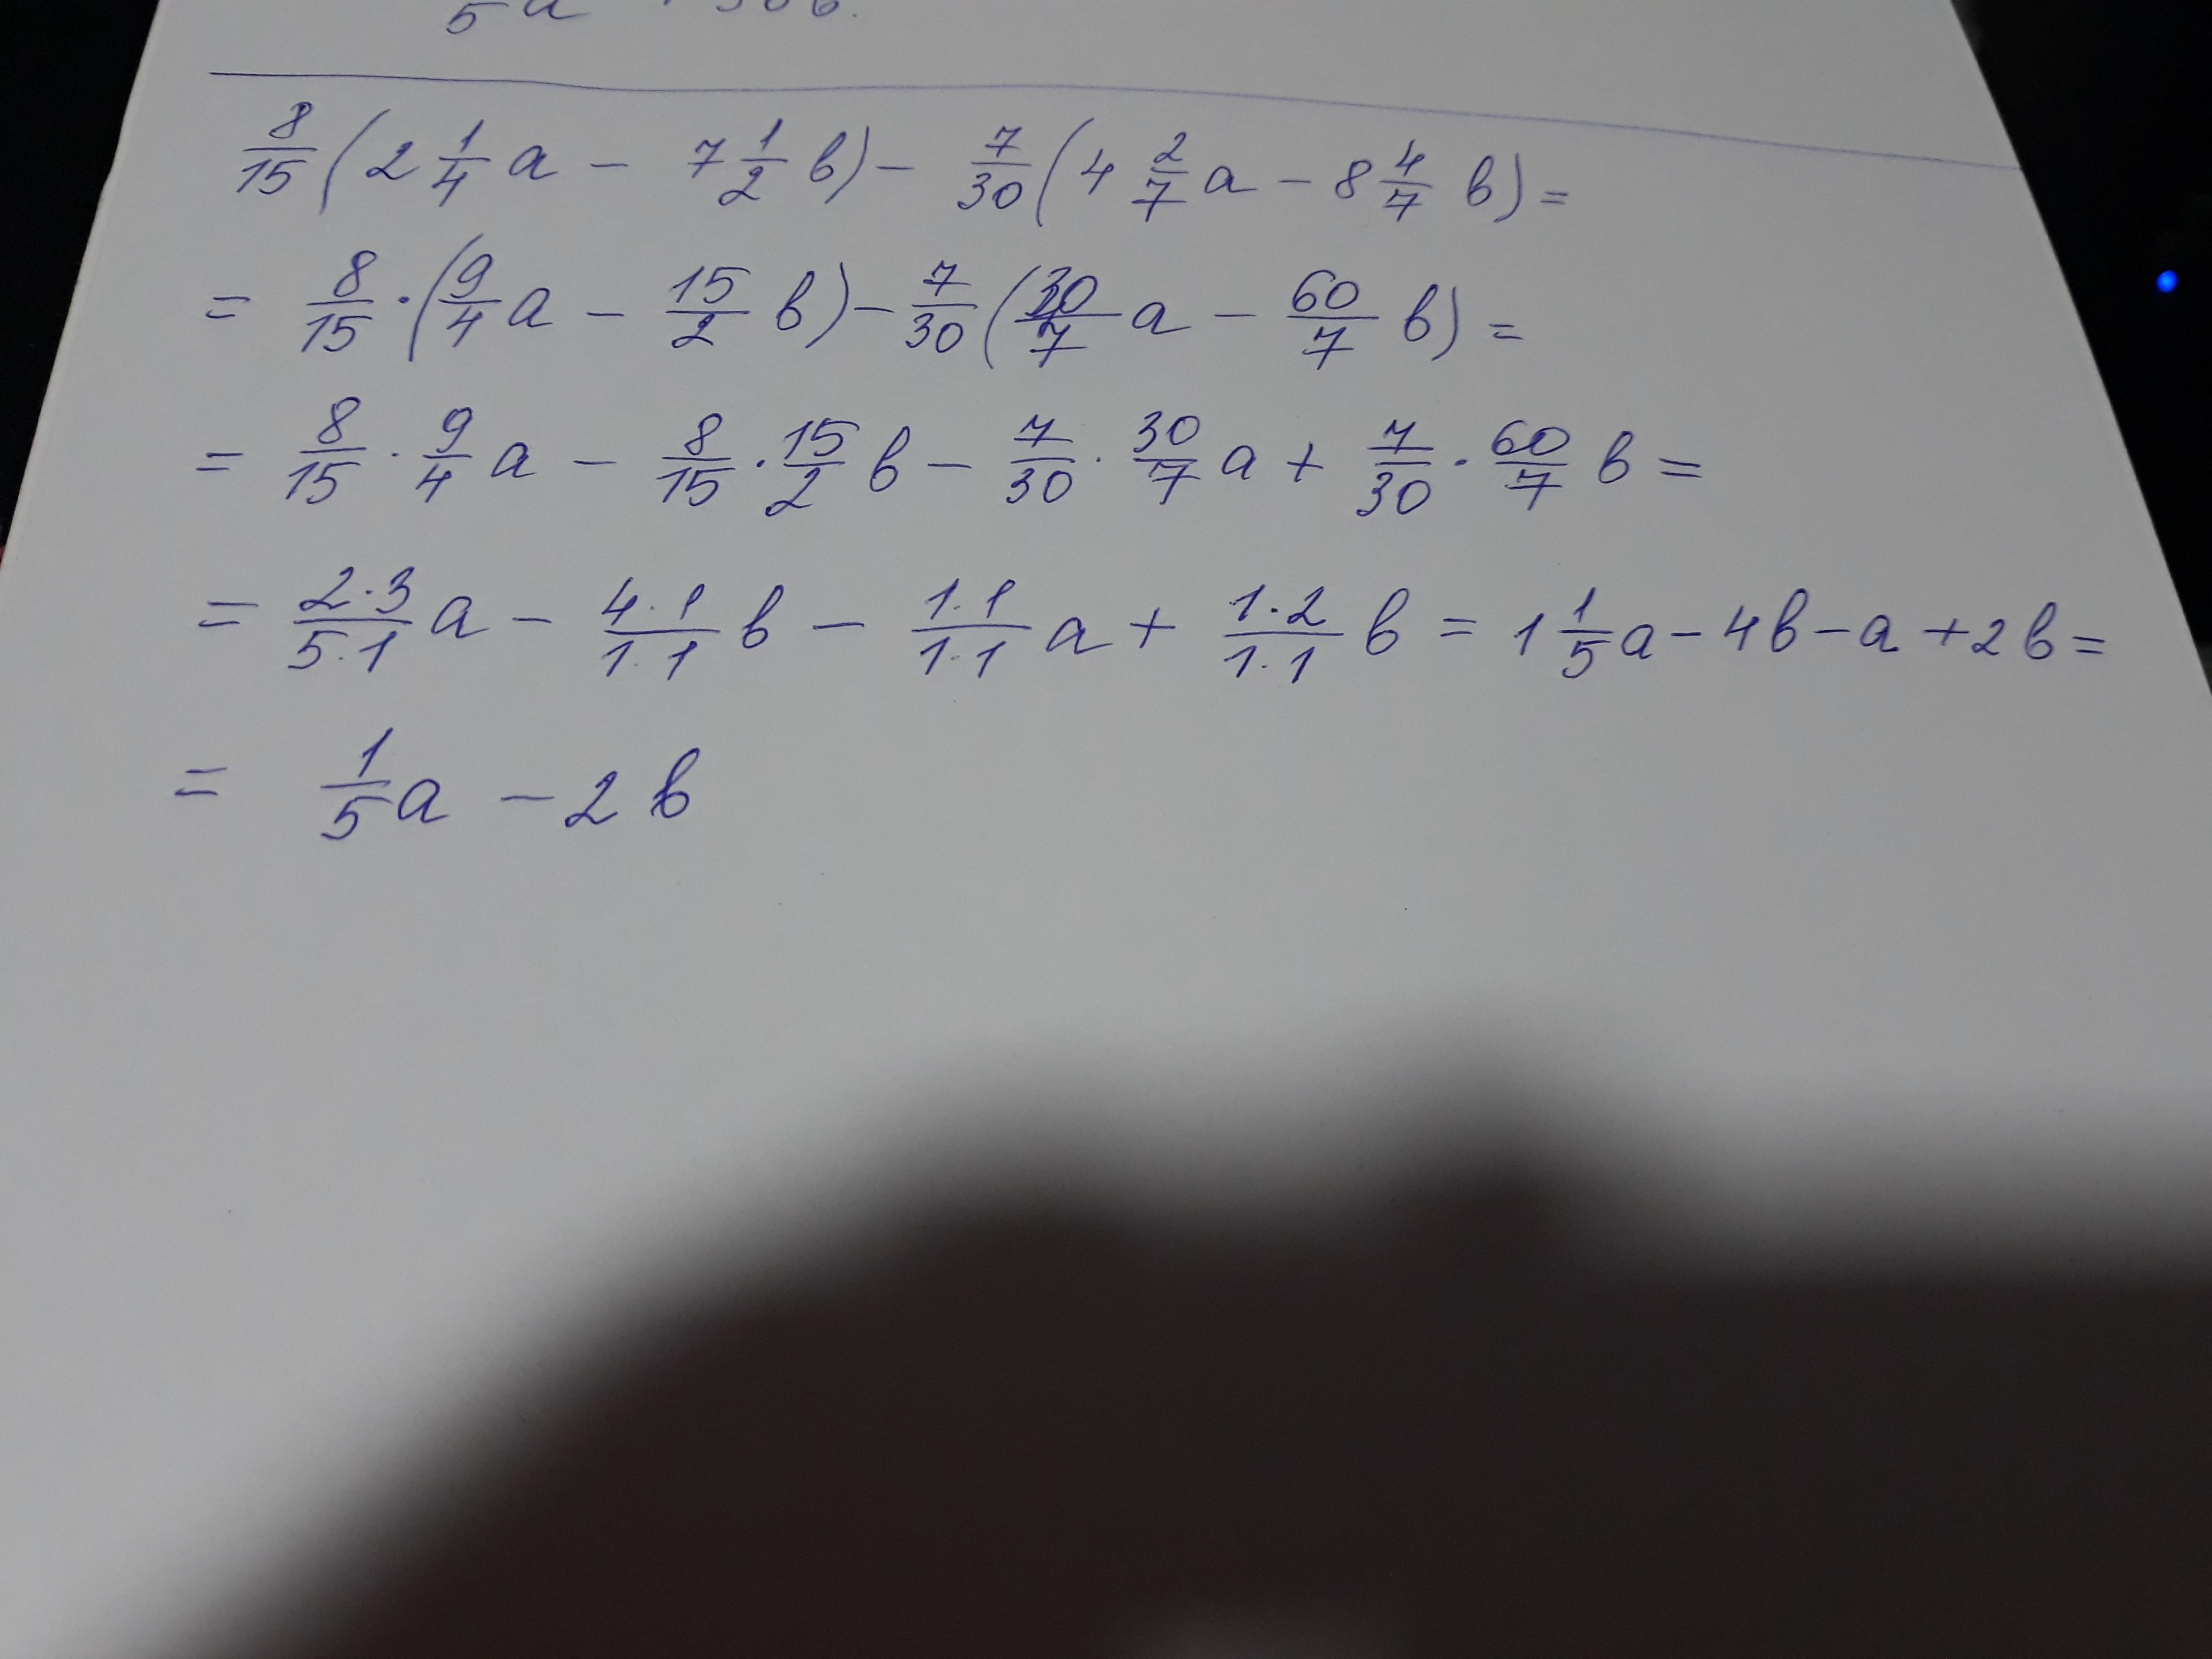 8/15 (2 1/4 a - 7 1/2 b) - 7/30 (4 2/7 a - 8 4/7 b) =
= 8/15 · (9/4 a - 15/2 b) - 7/30 (30/7 a - 60/7 b) =
= 8/15 · 9/4 a - 8/15 · 15/2 b - 7/30 · 30/7 a + 7/30 · 60/7 b =
= 2·3/5·1 a - 4·1/1·1 b - 1·1/1·1 a + 1·2/1·1 b = 1 1/5 a - 4b - a + 2b =
= 1/5 a - 2b